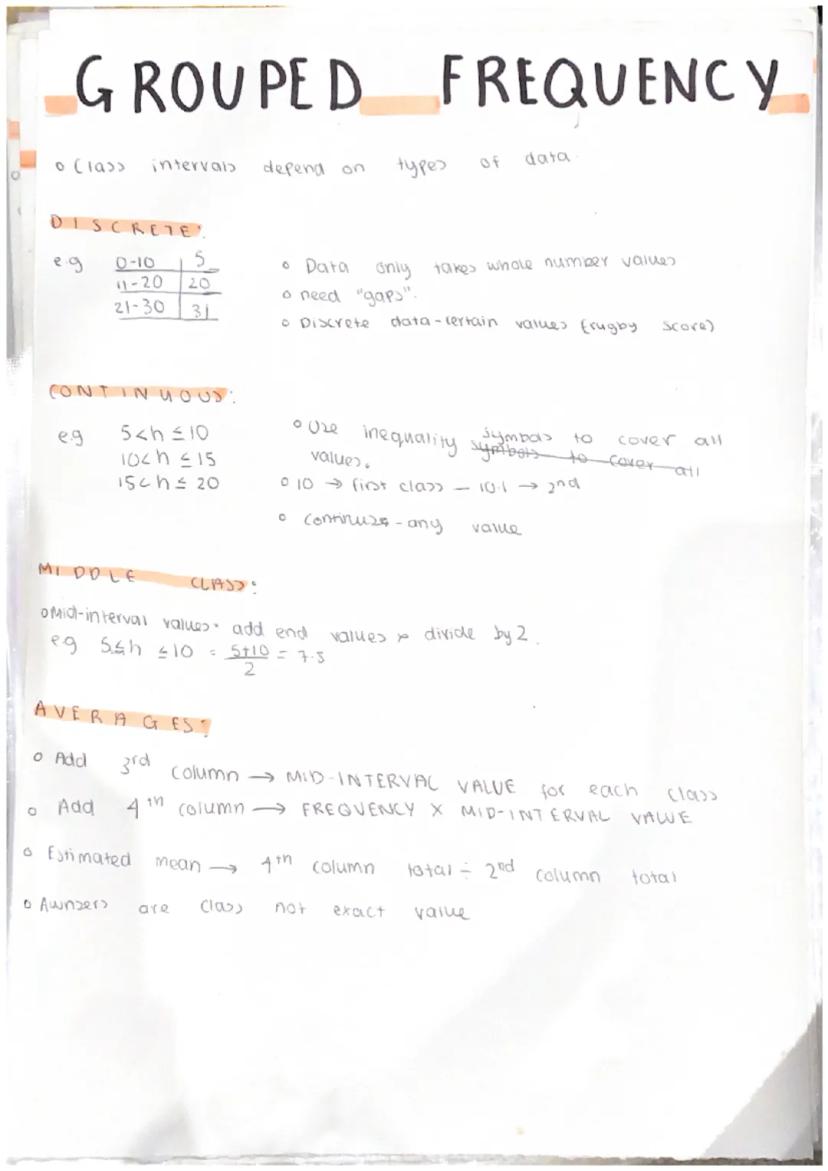 GROUPED FREQUENCY
o Class intervals depend on types of data.
DISCRETE:
e.g 0-10 | 5
11-20 | 20
21-30 | 31
o Data only takes whole number values
o need "gaps".
o Discrete data-certain values (rugby score)
CONTINUOUS:
e.g 5<h≤10
10<h≤15
15<h≤20
o Use inequality symbols to cover all
values. symbols to cover all
o 10 → first class – 10.1 → 2nd
o Continuos-any value
MIDDLE CLASS:
o Mid-interval values· add end values & divide by 2.
eg 5≤h≤10 = 5+10/2 = 7.5
AVERAGES:
o Add 3rd column → MID-INTERVAL VALUE for each class
o Add 4th column → FREQUENCY X MID-INTERVAL VALUE
o Estimated mean → 4th column total ÷ 2nd column total
o Awnsers are class not exact value